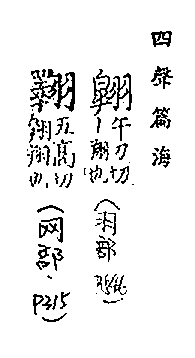 四聲篇海
午刀切
丨翔也
（羽部
五高切
翔也
（网部
P215）